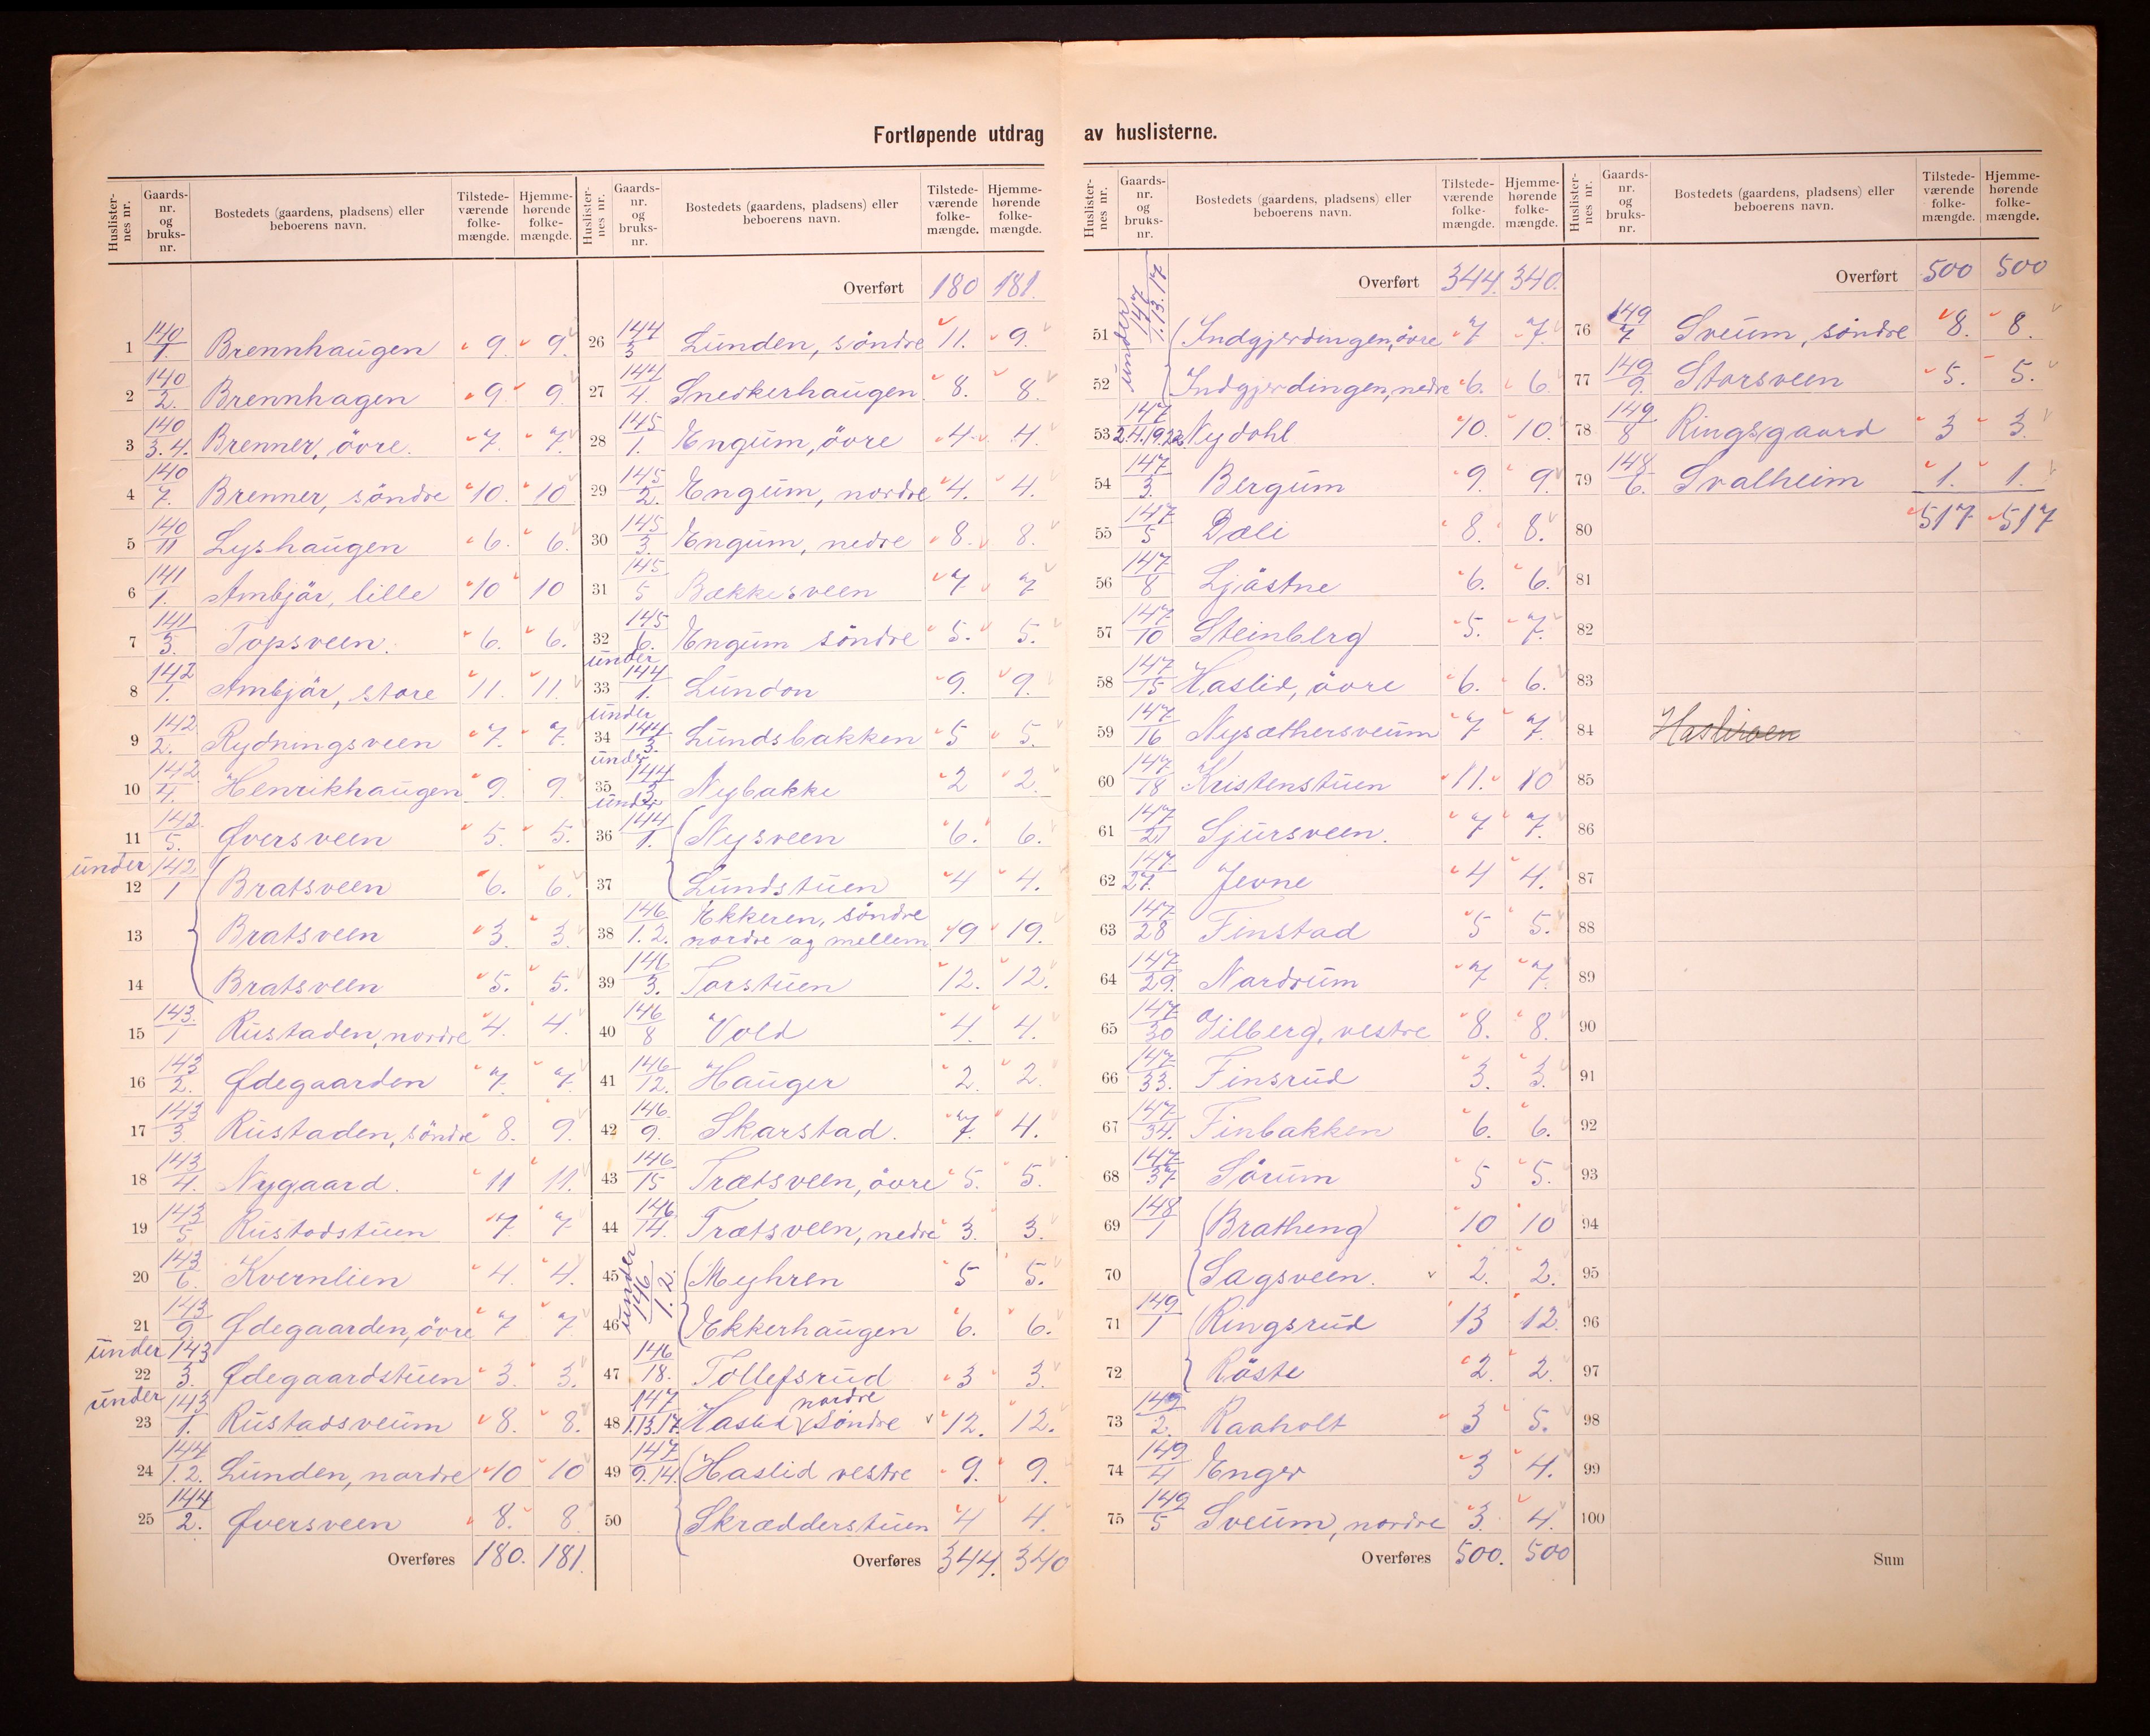 Fortløpende utdrag av huslisterne.
Huslister-nes nr. Gaards-nr. og bruks-nr. Bostedets (gaardens, pladsens) eller beboerens navn. Tilstede-værende folke-mængde. Hjemme-hørende folke-mængde.
1 140/1. Brennhaugen 9. 9.
2 140/2. Brennhagen 9. 9.
3 140/3.4. Brenner, övre. 7. 7.
4 140/7. Brenner, söndre 10. 10
5 140/11 Lyshaugen 6. 6.
6 141/1. Ambjär, lille 10 10
7 141/3. Topsveen. 6. 6.
8 142/1. Ambjär, store 11. 11.
9 142/2. Rydningsveen 7. 7.
10 142/4. Henrikhaugen 9. 9.
11 142/5. Øversveen 5. 5.
12 under 142/1 Bratsveen 6. 6.
13 Bratsveen 3. 3.
14 Bratsveen 5. 5.
15 143./1 Rustaden, nordre 4. 4.
16 143/2. Ødegaarden 7. 7.
17 143/3. Rustaden, söndre 8. 9.
18 143/4. Nygaard. 11 11.
19 143/5 Rustadstuen 7 7
20 143/6. Kvernlien 4. 4.
21 143/9. Ødegaarden, övre 7 7.
22 under 143/3. Ødegaardstuen 3. 3.
23 under 143/1. Rustadsveum 8. 8.
24 144/1.2. Lunden, nordre 10 10
25 144/2. Øversveen 8. 8
Overføres 180. 181.
Huslister-nes nr. Gaards-nr. og bruks-nr. Bostedets (gaardens, pladsens) eller beboerens navn. Tilstede-værende folke-mængde. Hjemme-hørende folke-mængde.
Overført 180 181.
26 144/3 Lunden, söndre 11. 9.
27 144/4. Snedkerhaugen 8. 8.
28 145/1. Engum, övre 4. 4.
29 145/2. Engum, nordre 4. 4.
30 145/3. Engum, nedre 8. 8.
31 145/5 Bækkesveen 7 7
32 145/6. Engum söndre 5. 5.
33 under 144/1. Lundon 9. 9.
34 under 144/3. Lundsbakken 5 5.
35 under 144/3 Nybakke 2 2.
36 under 144/1. Nysveen 6. 6.
37 Lundstuen 4 4.
38 146/1.2. Ekkeren, söndre nordre og mellem 19 19.
39 146/3. Torstuen 12. 12.
40 146/8 Vold 4. 4.
41 146/12. Hauger 2. 2.
42 146./9. Skarstad. 7. 4.
43 146/15 Trætsveen, övre 5. 5.
44 146/14. Trætsveen, nedre 3. 3.
45 under 146/1.2. Myhren 5 5.
46 Ekkerhaugen 6. 6.
47 146/18. Tollefsrud 3 3.
48 147/1.13.17. Haslid nordre söndre 12. 12.
49 147/9.14. Haslid vestre 9. 9.
50 Skrædderstuen 4 4.
Overføres 344. 340
Huslister-nes nr. Gaards-nr. og bruks-nr. Bostedets (gaardens, pladsens) eller beboerens navn. Tilstede-værende folke-mængde. Hjemme-hørende folke-mængde.
Overført 344. 340.
51 under 147/1.13.17 Indgjerdingen, övre 7 7.
52 Indgjerdingen, nedre 6. 6.
53 147/2.4.19.22. Nydohl 10. 10.
54 147/3. Bergum 9. 9.
55 147/5 Dæli 8. 8.
56 147/8 Ljöstne 6. 6.
57 147/10 Steinberg 5. 7.
58 147/15 Haslid, övre 6. 6.
59 147/16 Nysæthersveum 7 7.
60 147/18 Kristenstuen 11. 10
61 147/21 Sjursveen. 7 7.
62 147./27. Jevne 4 4.
63 147/28 Finstad 5 5.
64 147/29. Nordrum 7 7.
65 147/30 Vilberg, vestre 8. 8.
66 147/33. Finsrud 3. 3.
67 147/34. Finbakken 6. 6.
68 147/37 Sörum 5 5.
69 148/1 Bratheng 10 10
70 Sagsveen. 2. 2.
71 149/1 Ringsrud 13 12.
72 Röste 2. 2.
73 149/2. Raaholt 3 5.
74 149/4 Enger 3 4.
75 149/5 Sveum, nordre 3. 4.
Overføres 500. 500
Huslister-nes nr. Gaards-nr. og bruks-nr. Bostedets (gaardens, pladsens) eller beboerens navn. Tilstede-værende folke-mængde. Hjemme-hørende folke-mængde.
Overført 500 500
76 149/7 Sveum, söndre 8. 8.
77 149/9. Storsveen 5. 5.
78 149/8 Ringsgaard 3 3.
79 148/6. Svalheim 1. 1.
80 517 517
81
82
83
84
85
86
87
88
89
90
91
92
93
94
95
96
97
98
99
100
Sum